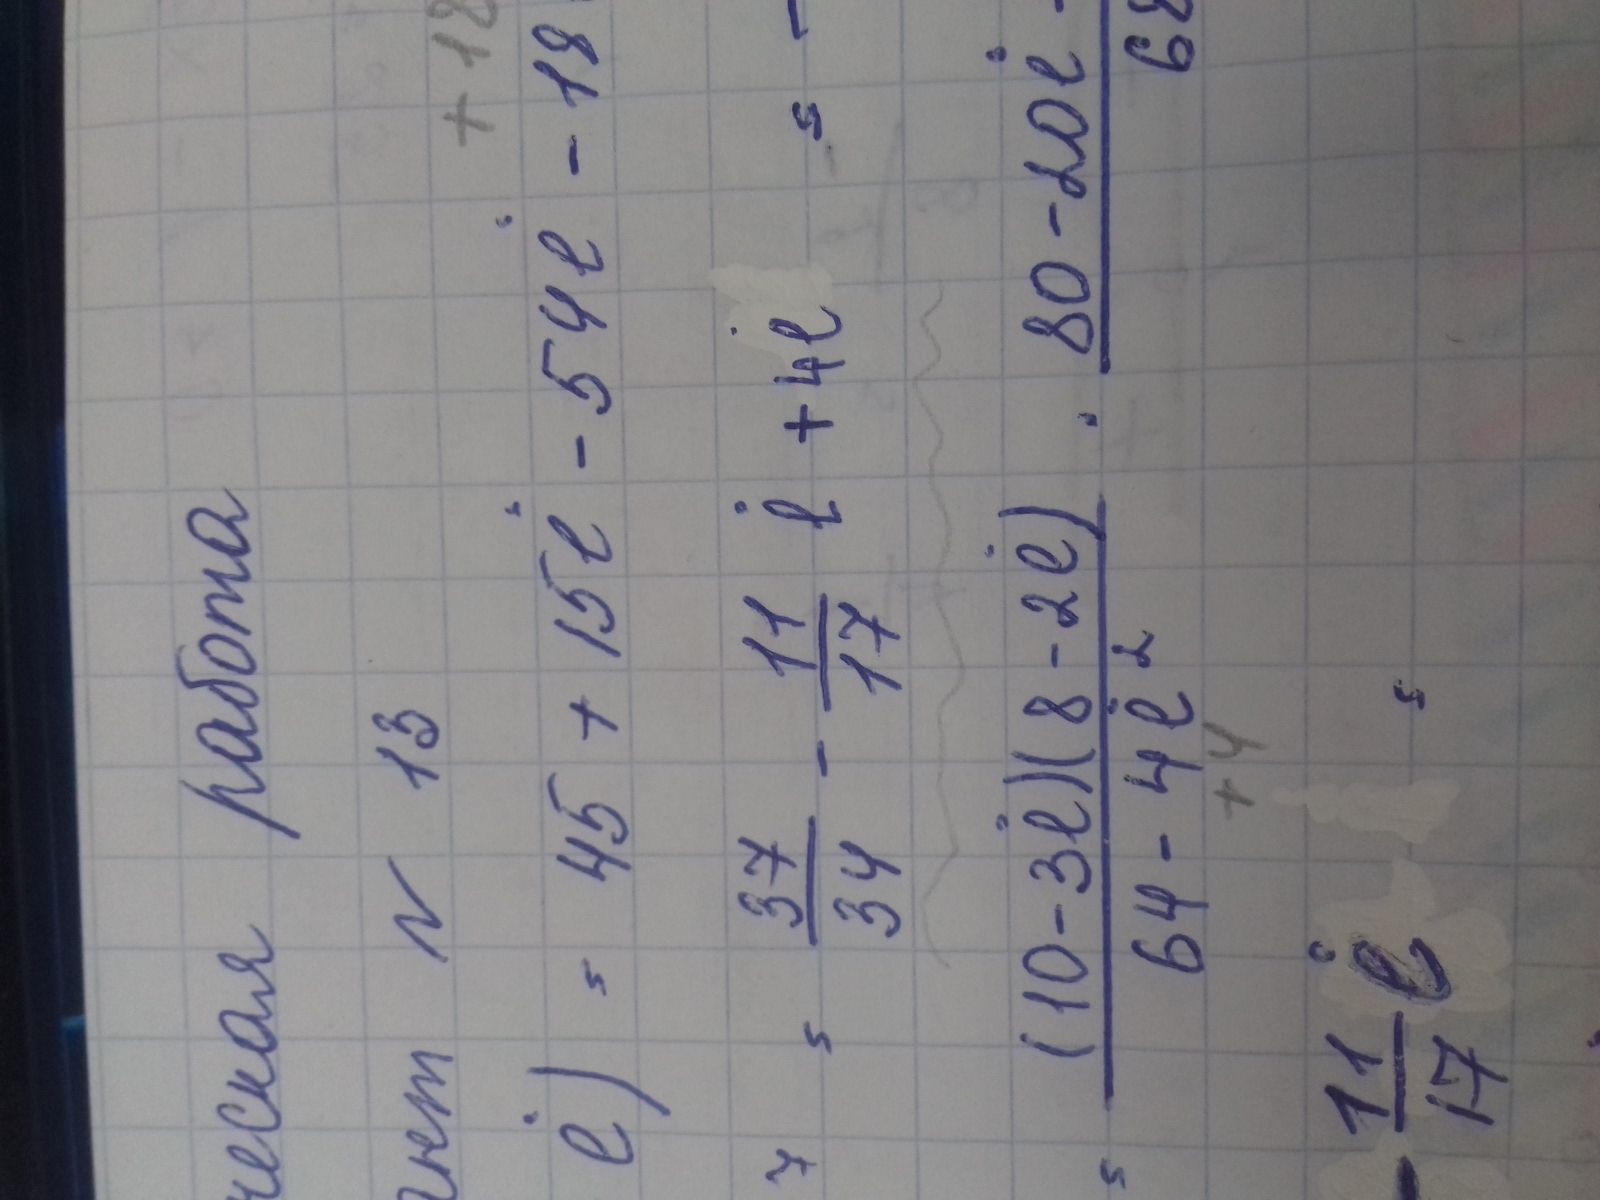 ческая работа
№ 13
+ 18
i) = 45 + 15i - 54i - 18
= 37/34 - 11/17 i + 4i = -
= (10-3i)(8-2i)/64-4i² : 80-20i -/68
+4
- 11/17 i =